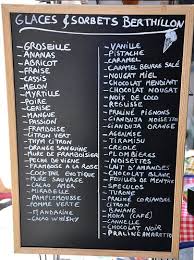 GLACES & SORBETS BERTHILLON
- GROSEILLE
- ANANAS
- ABRICOT
- FRAISE
- CASSIS
- MELON
- MYRTILLE
- POIRE
- CERISE
- MANGUE
- PASSION
- FRAMBOISE
- CITRON VERT
- THYM CITRON
- ORANGE SANGUINE
- MURE DE FRAMBOISIER
- PECHE DE VIGNE
- FRAMBOISE A LA ROSE
- COCKTAIL EXOTIQUE
- MURE SAUVAGE
- CACAO AMER
- MIRABELLE
- PAMPLEMOUSSE
- POMME VERTE
- MANDARINE
- CACAO WHISKY
- VANILLE
- PISTACHE
- CARAMEL
- CARAMEL BEURRE SALÉ
- NOUGAT MIEL
- CHOCOLAT MENDIANT
- CHOCOLAT NOUGAT
- NOIX DE COCO
- REGLISSE
- PRALINE PIGNONS
- GIANDUJA ORANGE
- AGENAIS
- TIRAMISU
- CREOLE
- PLOMBIERES
- NOISETTE
- LAIT D'AMANDES
- CHOCOLAT BLANC
- FEUILLES DE MENTHE
- SPECULOS
- TURRON
- PRALINE CORIANDRE
- CITRON
- BANANE
- MOKA (CAFÉ)
- CANNELLE
- PRALINE AMARETTO